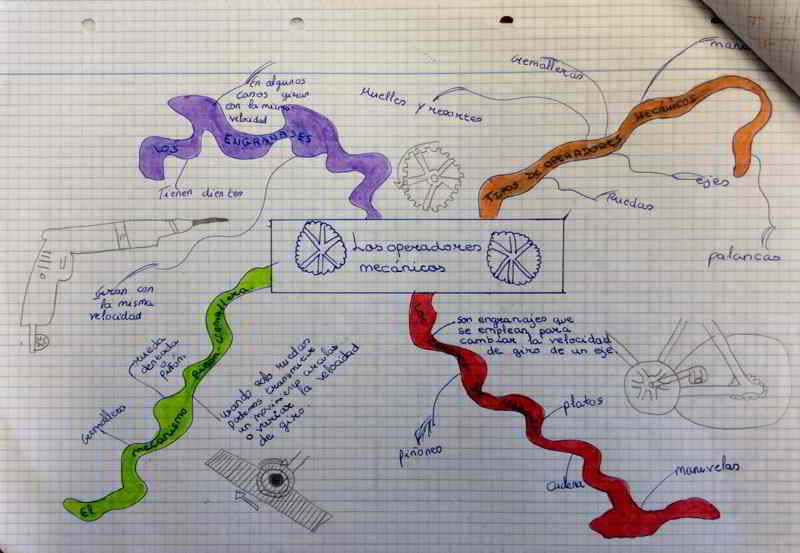 Los operadores
mecánicos
LOS ENGRANAJES
En algunos
casos giran
con la misma
velocidad
Tienen dientes
Giran con
la misma
velocidad
TIPOS DE OPERADORES MECÁNICOS
Muelles y resortes
Cremalleras
ejes
Ruedas
palancas
El mecanismo Piñón-cremallera
rueda
dentada
o
piñón
cremallera
usando solo ruedas
podemos transmitir
un movimiento circular
o variar la velocidad
de giro.
son engranajes que
se emplean para
cambiar la velocidad
de giro de un eje.
piñones
platos
cadena
manivelas